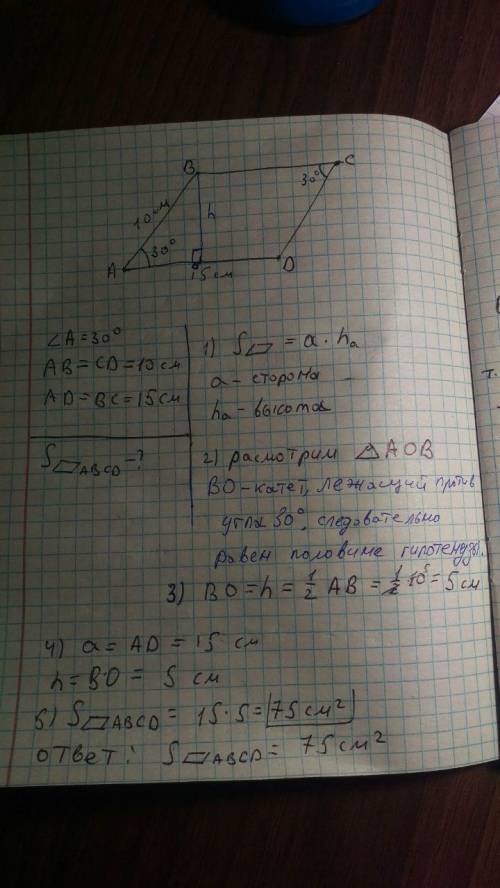 B
C
30°
10 см
h
A
30°
15 см
D
∠A = 30°
AB = CD = 10 см
AD = BC = 15 см
S▱ABCD - ?
1) S▱ = a · hₐ
a - сторона
hₐ - высота
2) расмотрим △AOB
BO - катет, лежащий против
угла 30°, следовательно
равен половине гипотенузы.
3) BO = h = 1/2 AB = 1/2 10 5 = 5 см
4) a = AD = 15 см
h = BO = 5 см
5) S▱ABCD = 15 · 5 = 75 см²
ответ: S▱ABCD = 75 см²